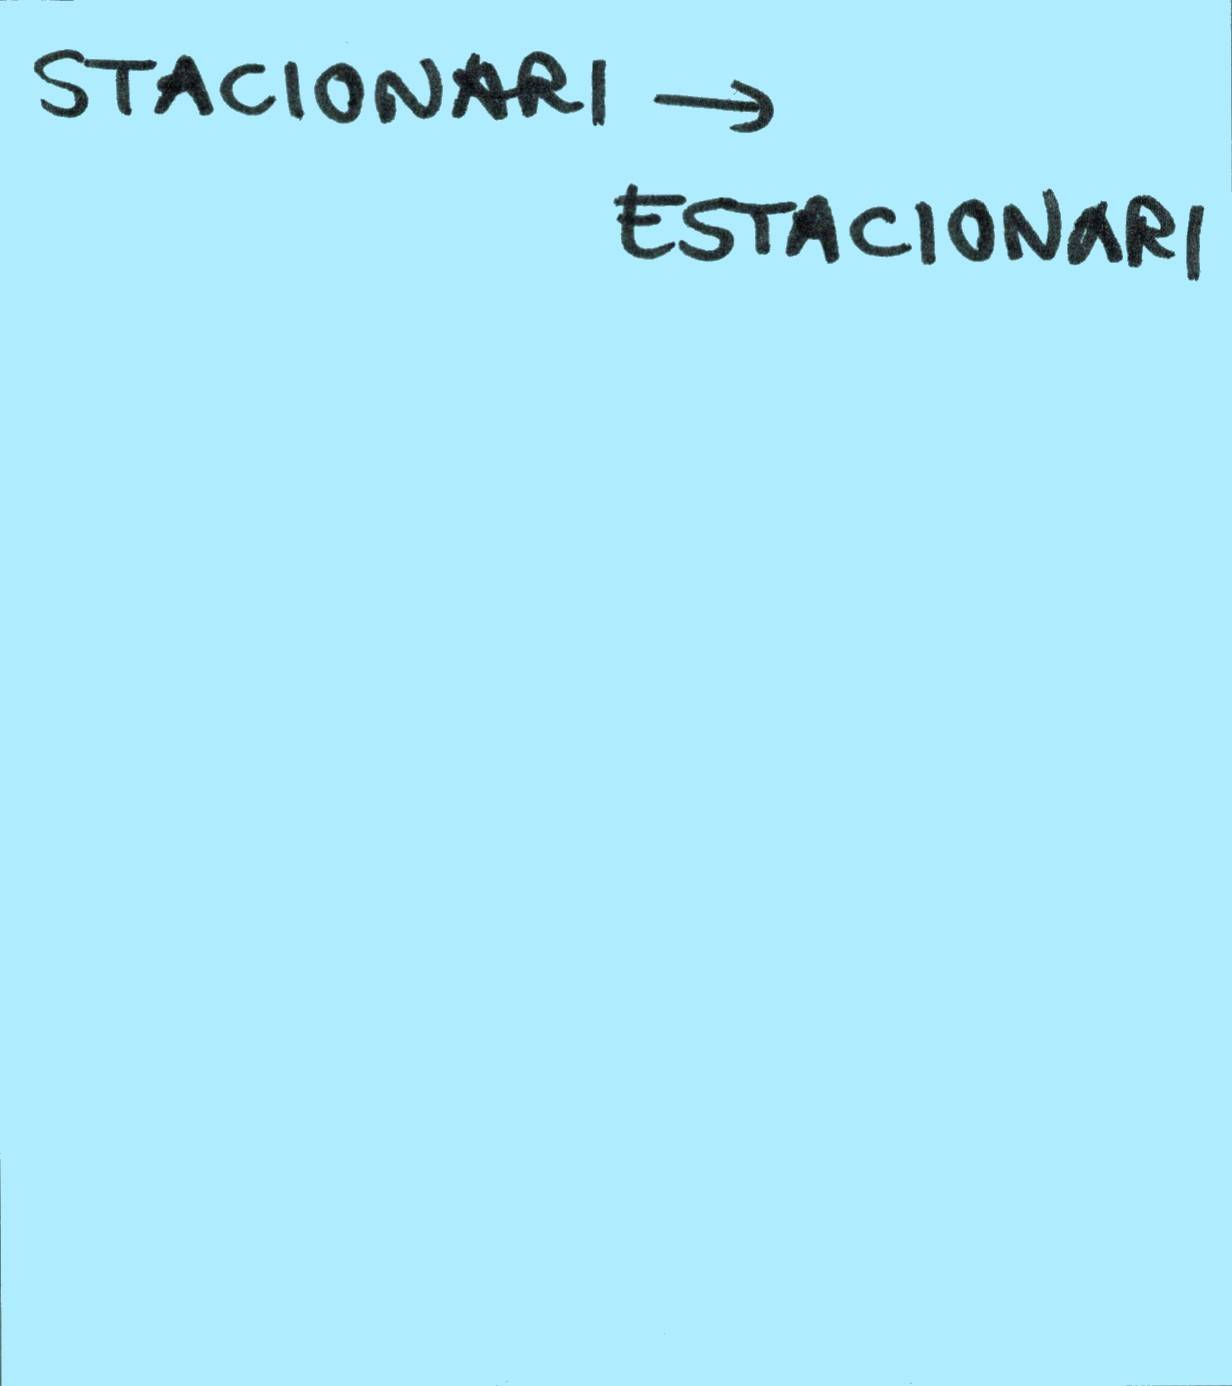 STACIONARI →
ESTACIONARI